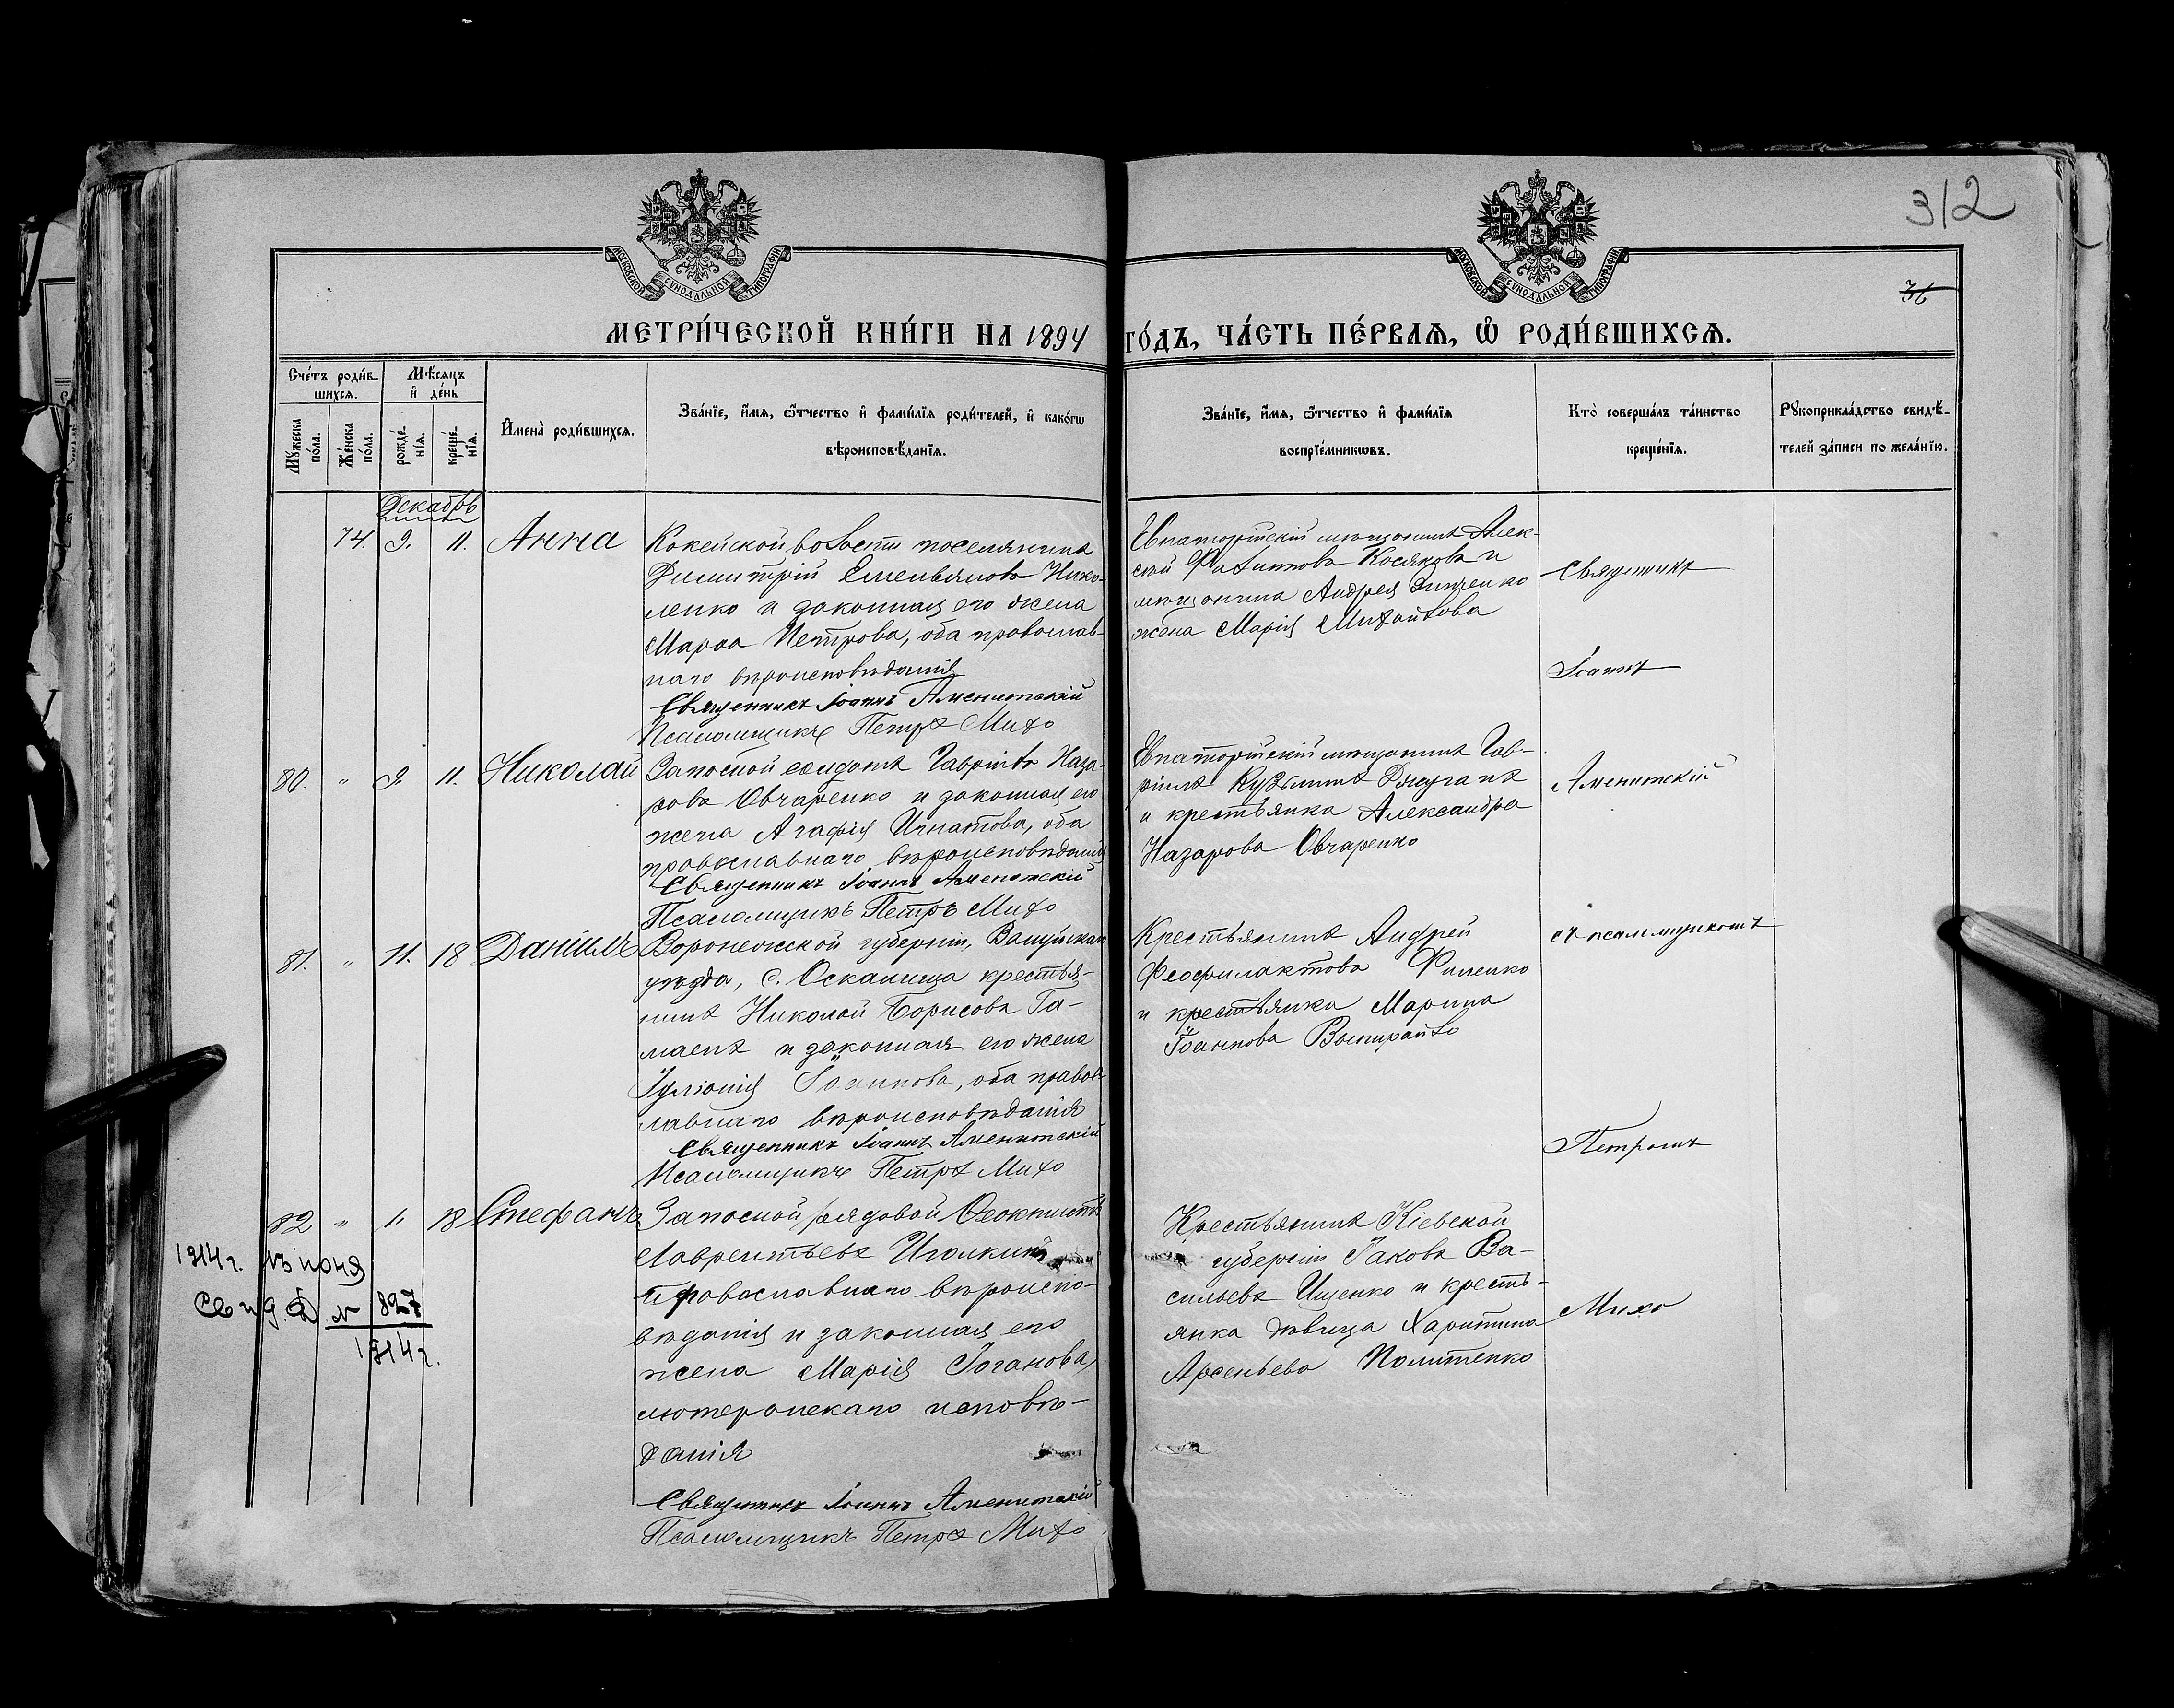 312
36
МОСКОВСКОЙ СѴНОДАЛЬНОЙ ТИПОГРАФІИ
МОСКОВСКОЙ СѴНОДАЛЬНОЙ ТИПОГРАФІИ
МЕТРИ́ЧЕСКОЙ КНИ́ГИ НА 1894 ГО́ДЪ, ЧА́СТЬ ПЕ́РВАѦ, Ѡ РОДИ́ВШИХСѦ.
Сче́тъ роди́вшихсѧ.
Мꙋ́жеска по́ла.
Же́нска по́ла.
Мѣ́сѧцъ и҆ де́нь
рожде́нїѧ.
креще́нїѧ.
И҆мена̀ роди́вшихсѧ.
Зва́нїе, и҆́мѧ, ѻ҆́тчество и҆ фами́лїѧ роди́телей, и҆ како́гѡ
вѣроисповѣ́данїѧ.
Зва́нїе, и҆́мѧ, ѻ҆́тчество и҆ фами́лїѧ
воспрїе́мникѡвъ.
Кто̀ соверша́лъ та́инство
креще́нїѧ.
Рꙋкоприкла́дство свидѣ́-
телей за́писи по жела́нїю.
Декабрь
74. 9. 11. Анна
Кокейской волости поселянинъ
Димитрій Емельяновъ Нико-
ленко и законная его жена
Марѳа Петрова, оба православ-
наго вѣроисповѣданія
Священникъ Іоаннъ Аменитскій
Псаломщикъ Петръ Михо
Евпаторійскій мѣщанинъ Алек-
сѣй Филиповъ Косяковъ и
мѣщанина Андрея
жена Марія Михайлова
80. " 9. 11. Николай
Запасной солдатъ Гавріилъ Наза-
ровъ Овчаренко и законная его
жена Агафія Игнатова, оба
православнаго вѣроисповѣданія
Священникъ Іоаннъ Аменитскій
Псаломщикъ Петръ Михо
Евпаторійскій мѣщанинъ Гав-
ріилъ Кузьминъ
и крестьянка Александра
Назарова Овчаренко
81. " 11. 18 Даніилъ
Воронежской губерніи, Валуйскаго
уѣзда, с. Осканища крестья-
нинъ Николай Борисовъ Га-
маенъ и законная его жена
Іуліонія Іоаннова, оба правос-
лавнаго вѣроисповѣданія
Священникъ Іоаннъ Аменитскій
Псаломщикъ Петръ Михо
Крестьянинъ Андрей
Феофилактовъ Филенко
и крестьянка Марина
Іоаннова
82 " 11 18 Стефанъ
Запасной рядовой Ѳеоктистъ
Лаврентьевъ Иголкинъ
православнаго вѣроиспо-
вѣданія и законная его
жена Марія Іоганова,
лютеранскаго исповѣ-
данія
Священникъ Іоаннъ Аменитскій
Псаломщикъ Петръ Михо
Крестьянинъ Кіевской
губерніи Іаковъ Ва-
сильевъ Ищенко и кресть-
янка дѣвица Харитина
Арсеньева Политенко
1914 г. іюня
Свид. № 827
1914 г.
Священникъ
Іоаннъ
Аменитскій
съ псаломщикомъ
Петромъ
Михо